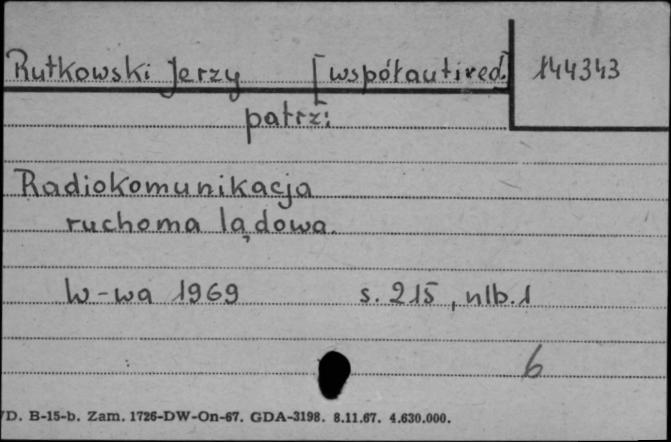 Rutkowski Jerzy [współaut i red.] 144343
patrz:
Radiokomunikacja
ruchoma lądowa.
W-wa 1969 s. 215, nlb. 1
6
D. B-15-b. Zam. 1726-DW-On-67. GDA-3198. 8.11.67. 4.630.000.